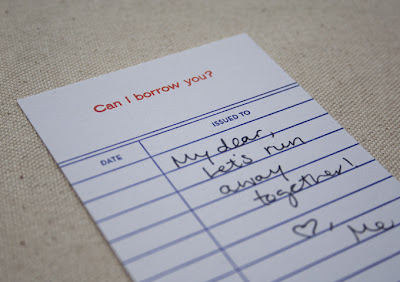 Can I borrow you?
DATE
ISSUED TO
My dear,
Let's run
away
together!
♡, Me